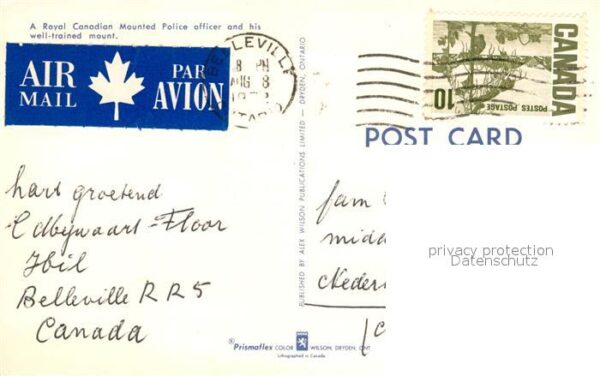 A Royal Canadian Mounted Police officer and his
well-trained mount.
AIR
MAIL
PAR
AVION
BELLEVILLE
8 PM
AUG 8
ONTARIO
CANADA
POSTES POSTAGE
10
POST CARD
PUBLISHED BY ALEX WILSON PUBLICATIONS LIMITED — DRYDEN, ONTARIO
hart groetend
Belleville RR5
Canada
fam
midd
Neder
privacy protection
Datenschutz
Prismaflex COLOR WILSON, DRYDEN, ONT
Lithographed in Canada